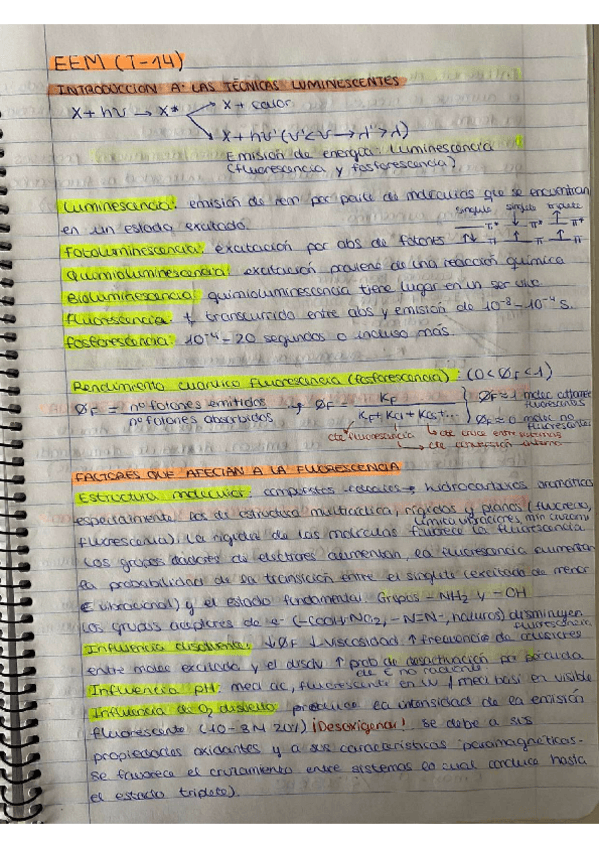 EEM (T-14)
INTRODUCCION A LAS TÉCNICAS LUMINESCENTES
X + hν → X* X + calor
X + hν' (ν' < ν → λ' > λ)
Emisión de energía: luminescencia
(fluorescencia y fosforescencia)
Luminiscencia: emisión de rem por parte de moléculas que se encuentran
en un estado excitado.
singlete singlete triplete
Fotoluminescencia: excitación por abs de fotones
π* π* π*
π π π
Quimioluminescencia: excitación proviene de una reacción química
Bioluminescencia: quimioluminescencia tiene lugar en un ser vivo
fluorescencia: t transcurrido entre abs y emisión de 10-8 - 10-4 s.
fosforescencia: 10-4 - 20 segundos o incluso más.
Rendimiento cuántico fluorescencia (fosforescencia): (0 < ØF < 1)
ØF = nº fotones emitidos / nº fotones absorbidos → ØF = KF / KF + Kci + Kcs + ...
ØF ≈ 1 molec altamente fluorescentes
ØF ≈ 0 molec no fluorescentes
cte fluorescencia → cte cruce entre sistemas
→ cte conversión interna
FACTORES QUE AFECTAN A LA FLUORESCENCIA
Estructura molecular: compuestos → hidrocarburos aromáticos
especialmente los de estructura multicíclica, rígidos y planos (fluoreno,
limita vibraciones, min
fluoresceina). La rigidez de las moléculas favorece la fluorescencia
Los grupos dadores de electrones aumentan la fluorescencia aumentan
la probabilidad de la transición entre el singlete (excitado de menor
E vibracional) y el estado fundamental. Grupos -NH2 y -OH
Los grupos aceptores de e- (-COOH, NO2, -N=N-, ) disminuyen
fluorescencia
Influencia disolvente: ↓ØF ↓viscosidad ↑frecuencia de colisiones
entre molec excitada y el disolv ↑ prob de desactivación por pérdida
de E no radiante
Influencia pH: med ac, fluorescente en UV / med basi en visible
Influencia de O2 disuelto: produce la intensidad de la emisión
fluorescente ¡Desoxigenar! Se debe a sus
propiedades oxidantes y a sus características paramagnéticas.
Se favorece el cruzamiento entre sistemas lo cual conduce hasta
el estado triplete).